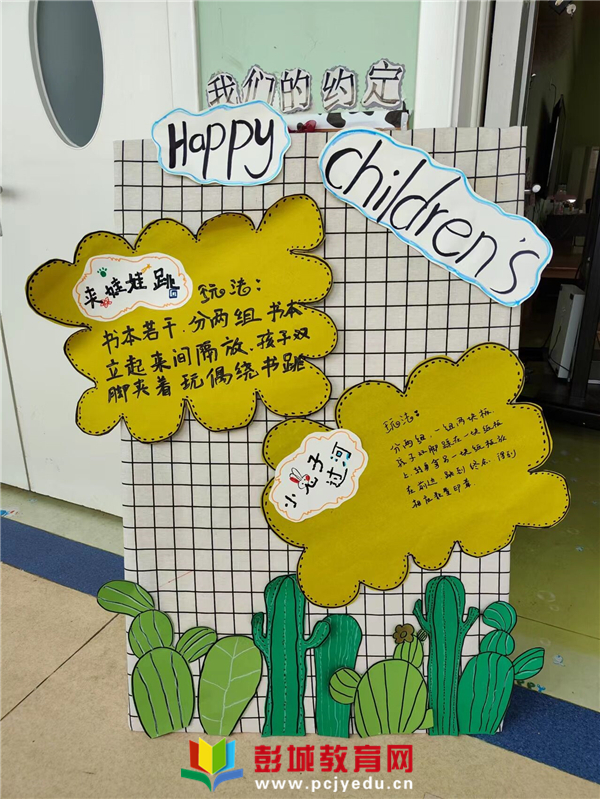 我们的约定
Happy
children's
夹娃娃跳
玩法：
书本若干.分两组.书本
立起来间隔放.孩子双
脚夹着玩偶绕书跳
小兔子
过河
玩法：
分两组.一组两块板.
孩子双脚踩在一块纸板
上.双手拿另一块纸板放
在前边.跳到终点.得到
相应数量印章
彭城教育网
www.pcjyedu.cn